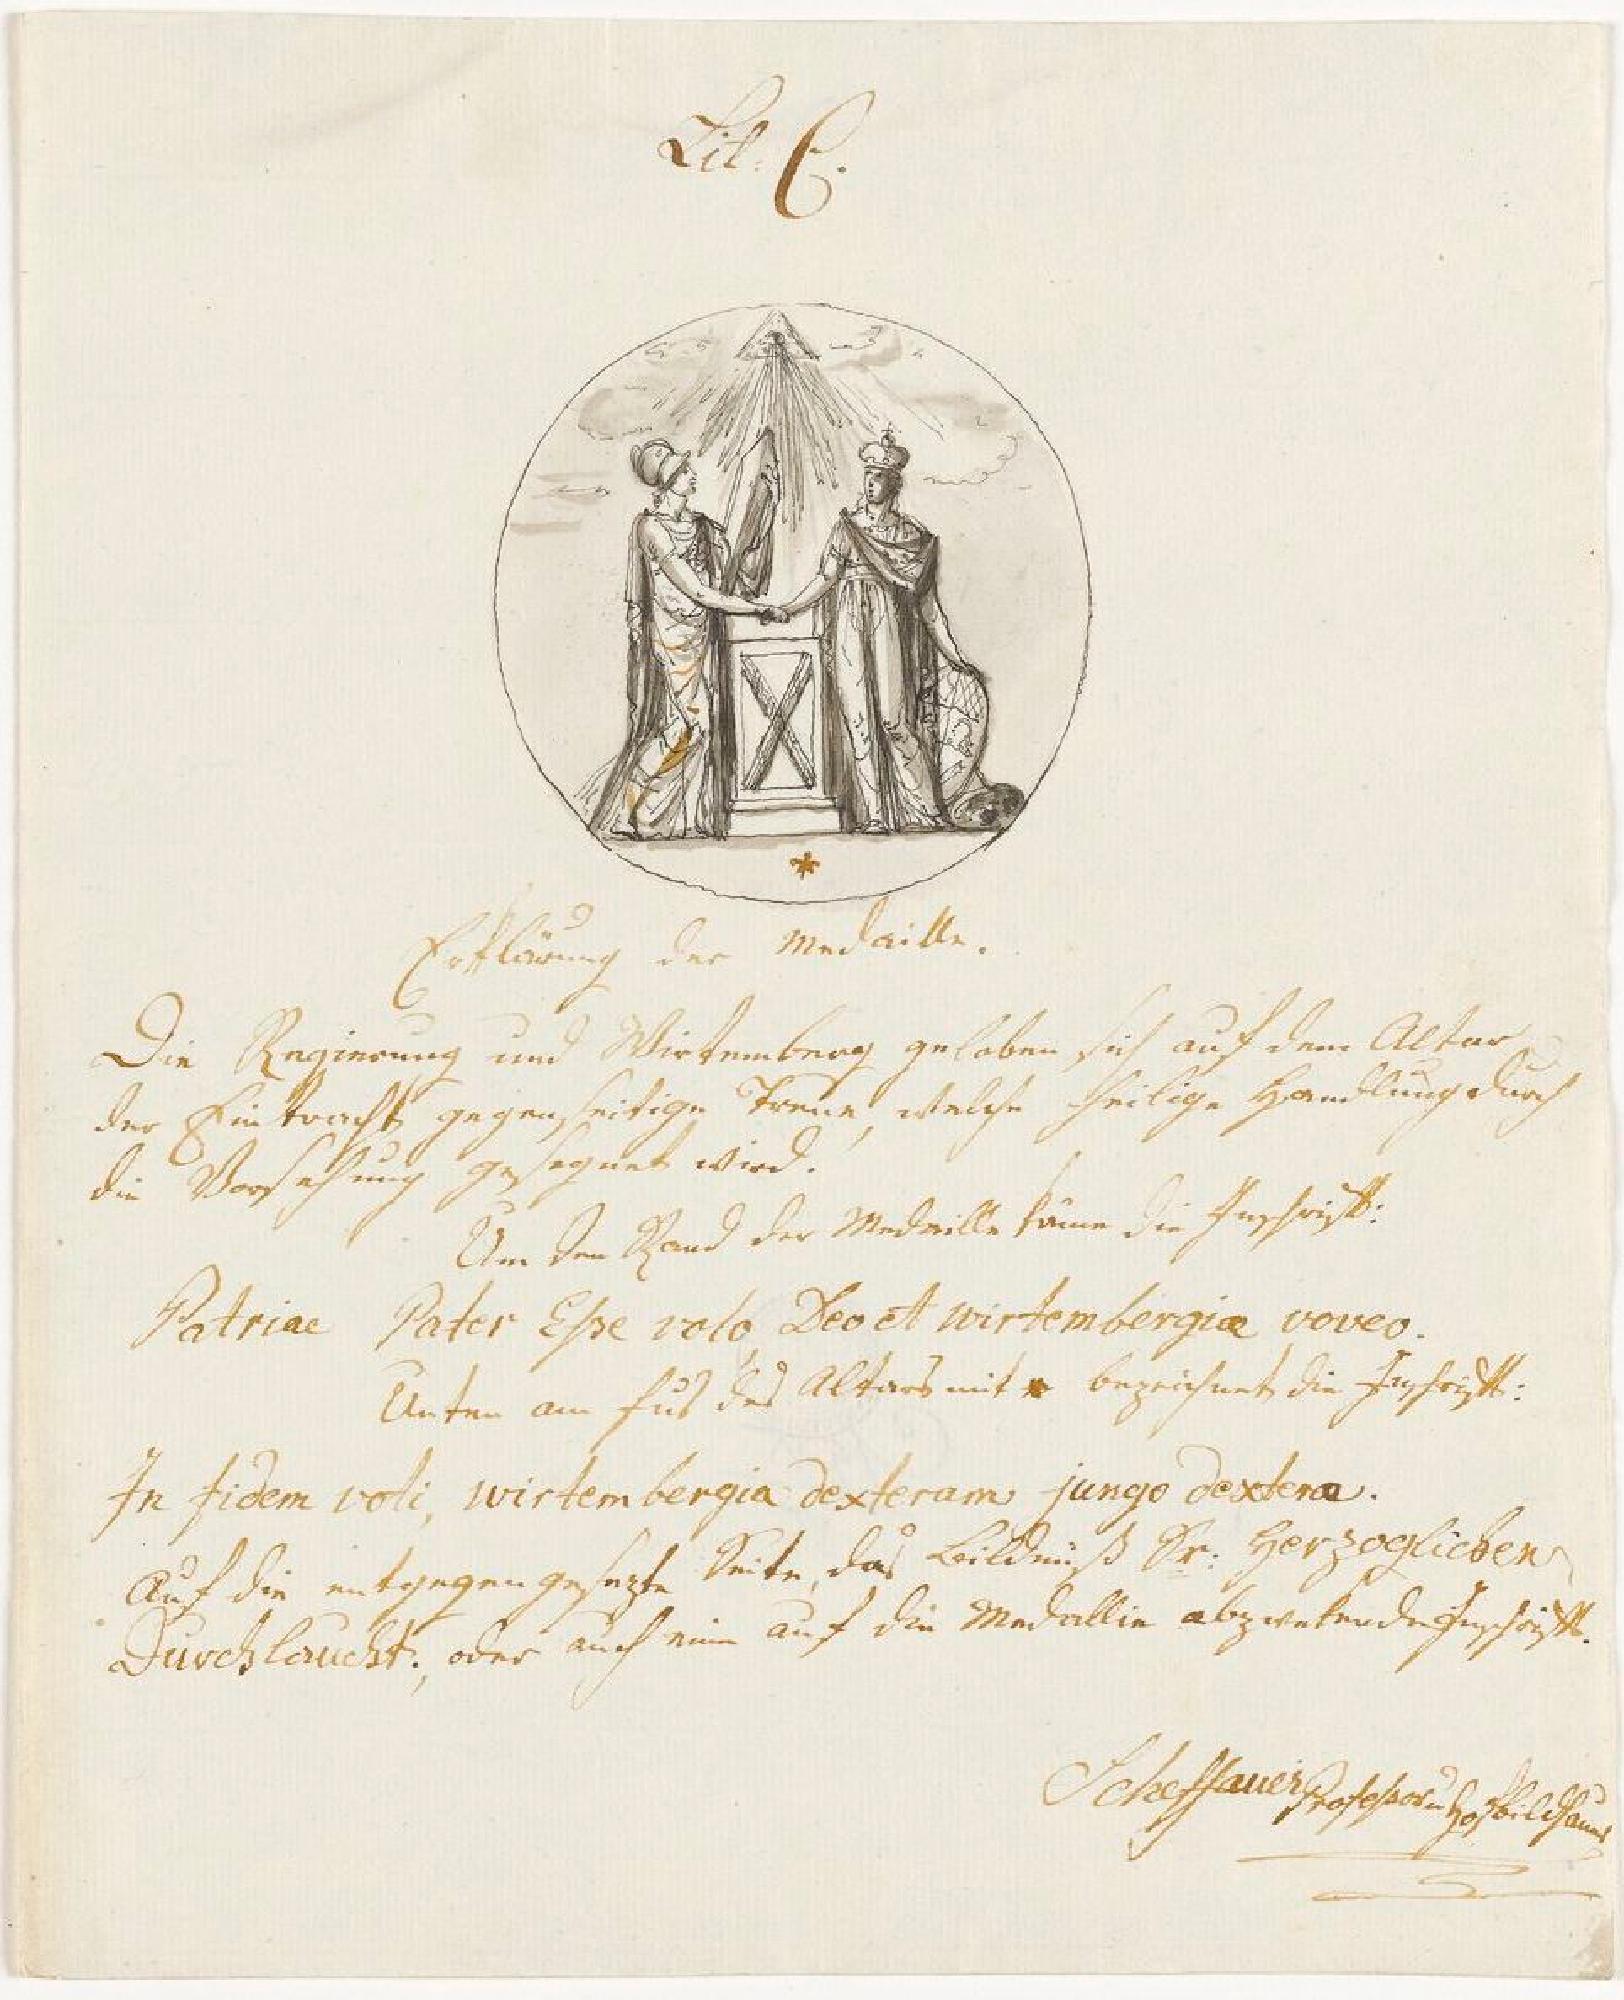 Lit: C.
Erklärung der Medaille.
Die Regierung und Wirtemberg geloben sich auf dem Altar
der Eintracht gegenseitige Treue, welche heilige Handlung durch
die Vorsehung gesegnet wird.
Um den Rand der Medaille käme die Inschrift:
Patriae Pater Esse volo, Deo et wirtembergiæ voveo.
Unten am Fus des Altars mit * bezeichnet die Inschrift:
In fidem voti, wirtembergia dexteram jungo dexteræ.
Auf die entgegengesezte Seite, das Bildniß Sr: Herzoglichen
Durchlaucht:, oder auch eine auf die Medallie abzwekende Inschrift.
Scheffauer Professor u Hofbildhauer